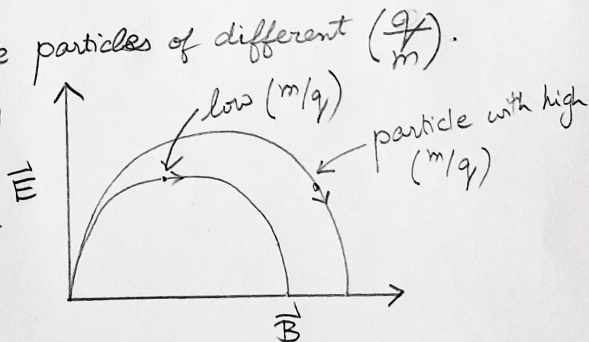 particles of different (q/m).
low (m/q)
particle with high
(m/q)
E⃗
B⃗